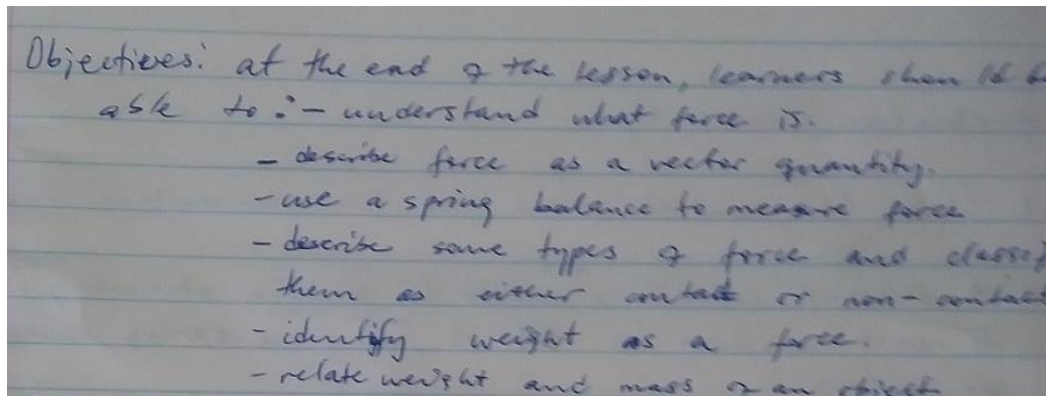 Objectives: at the end of the lesson, learners should b
able to :- understand what force is.
- describe force as a vector quantity.
- use a spring balance to measure force
- describe some types of force and classif
them as either contact or non-contact
- identify weight as a force.
- relate weight and mass of an object